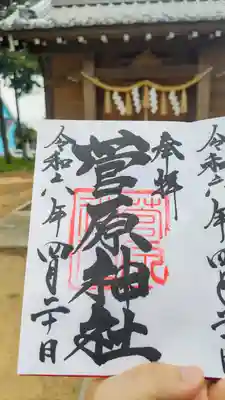 奉拝
菅原神社
令和六年四月二十日
令和六年四月二十日